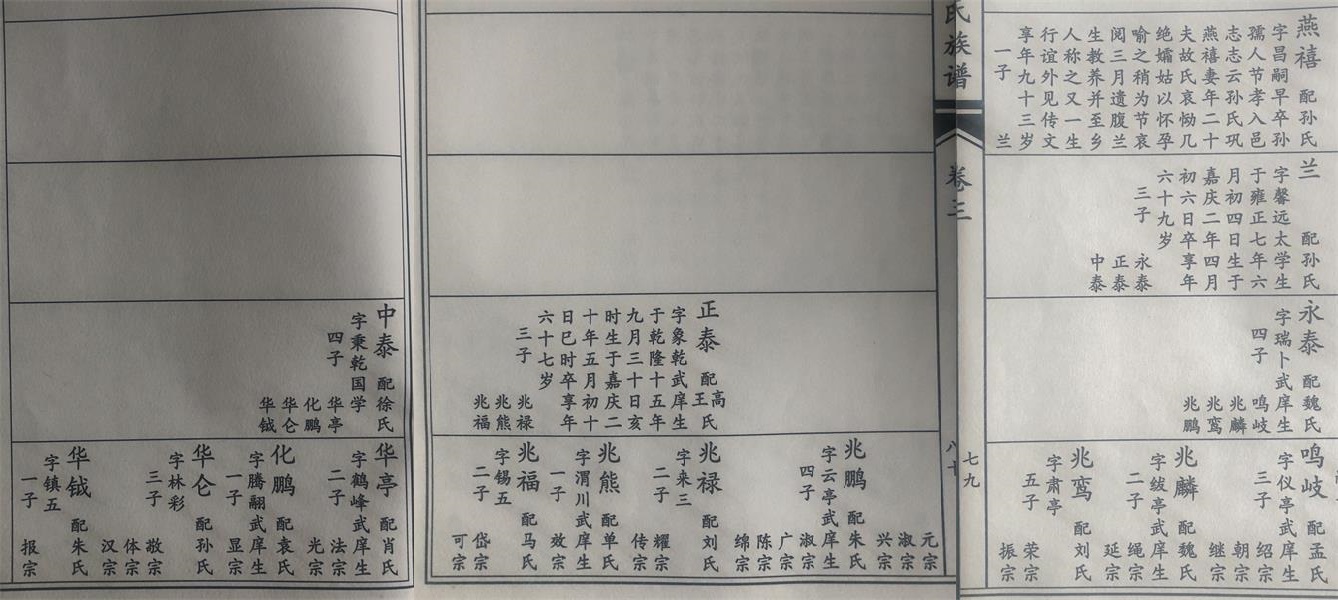 燕禧 配孙氏
字昌嗣早卒孙
孺人节孝入邑
志志云孙氏巩
燕禧妻年二十
夫故氏哀恸几
绝孀姑以怀孕
喻之稍为节哀
阅三月遗腹兰
生教养并至乡
人称之又一生
行谊外见传文
享年九十三岁
一子 兰
兰 配孙氏
字馨远太学生
于雍正七年六
月初四日生于
嘉庆二年四月
初六日卒享年
六十九岁
三子 永泰
正泰
中泰
永泰 配魏氏
字瑞卜武庠生
四子 鸣岐
兆麟
兆鸾
兆鹏
鸣岐 配孟氏
字仪亭武庠生
三子 绍宗
朝宗
继宗
兆麟 配魏氏
字绂亭武庠生
二子 绳宗
延宗
兆鸾 配刘氏
字肃亭
五子 荣宗
振宗
七九
氏族谱
卷三
八十
正泰 配高王氏
字象乾武庠生
于乾隆十五年
九月三十日亥
时生于嘉庆二
十年五月初十
日巳时卒享年
六十七岁
三子 兆禄
兆熊
兆福
元宗
淑宗
兴宗
兆鹏 配朱氏
字云亭武庠生
四子 淑宗
广宗
陈宗
绵宗
兆禄 配刘氏
字来三
二子 耀宗
传宗
兆熊 配单氏
字渭川武庠生
一子 效宗
兆福 配马氏
字锡五
二子 岱宗
可宗
中泰 配徐氏
字秉乾国学
四子 华亭
化鹏
华仑
华钺
华亭 配肖氏
字鹤峰武庠生
二子 法宗
光宗
化鹏 配袁氏
字腾翮武庠生
一子 显宗
华仑 配孙氏
字林彩
三子 敬宗
体宗
汉宗
华钺 配朱氏
字镇五
一子 报宗